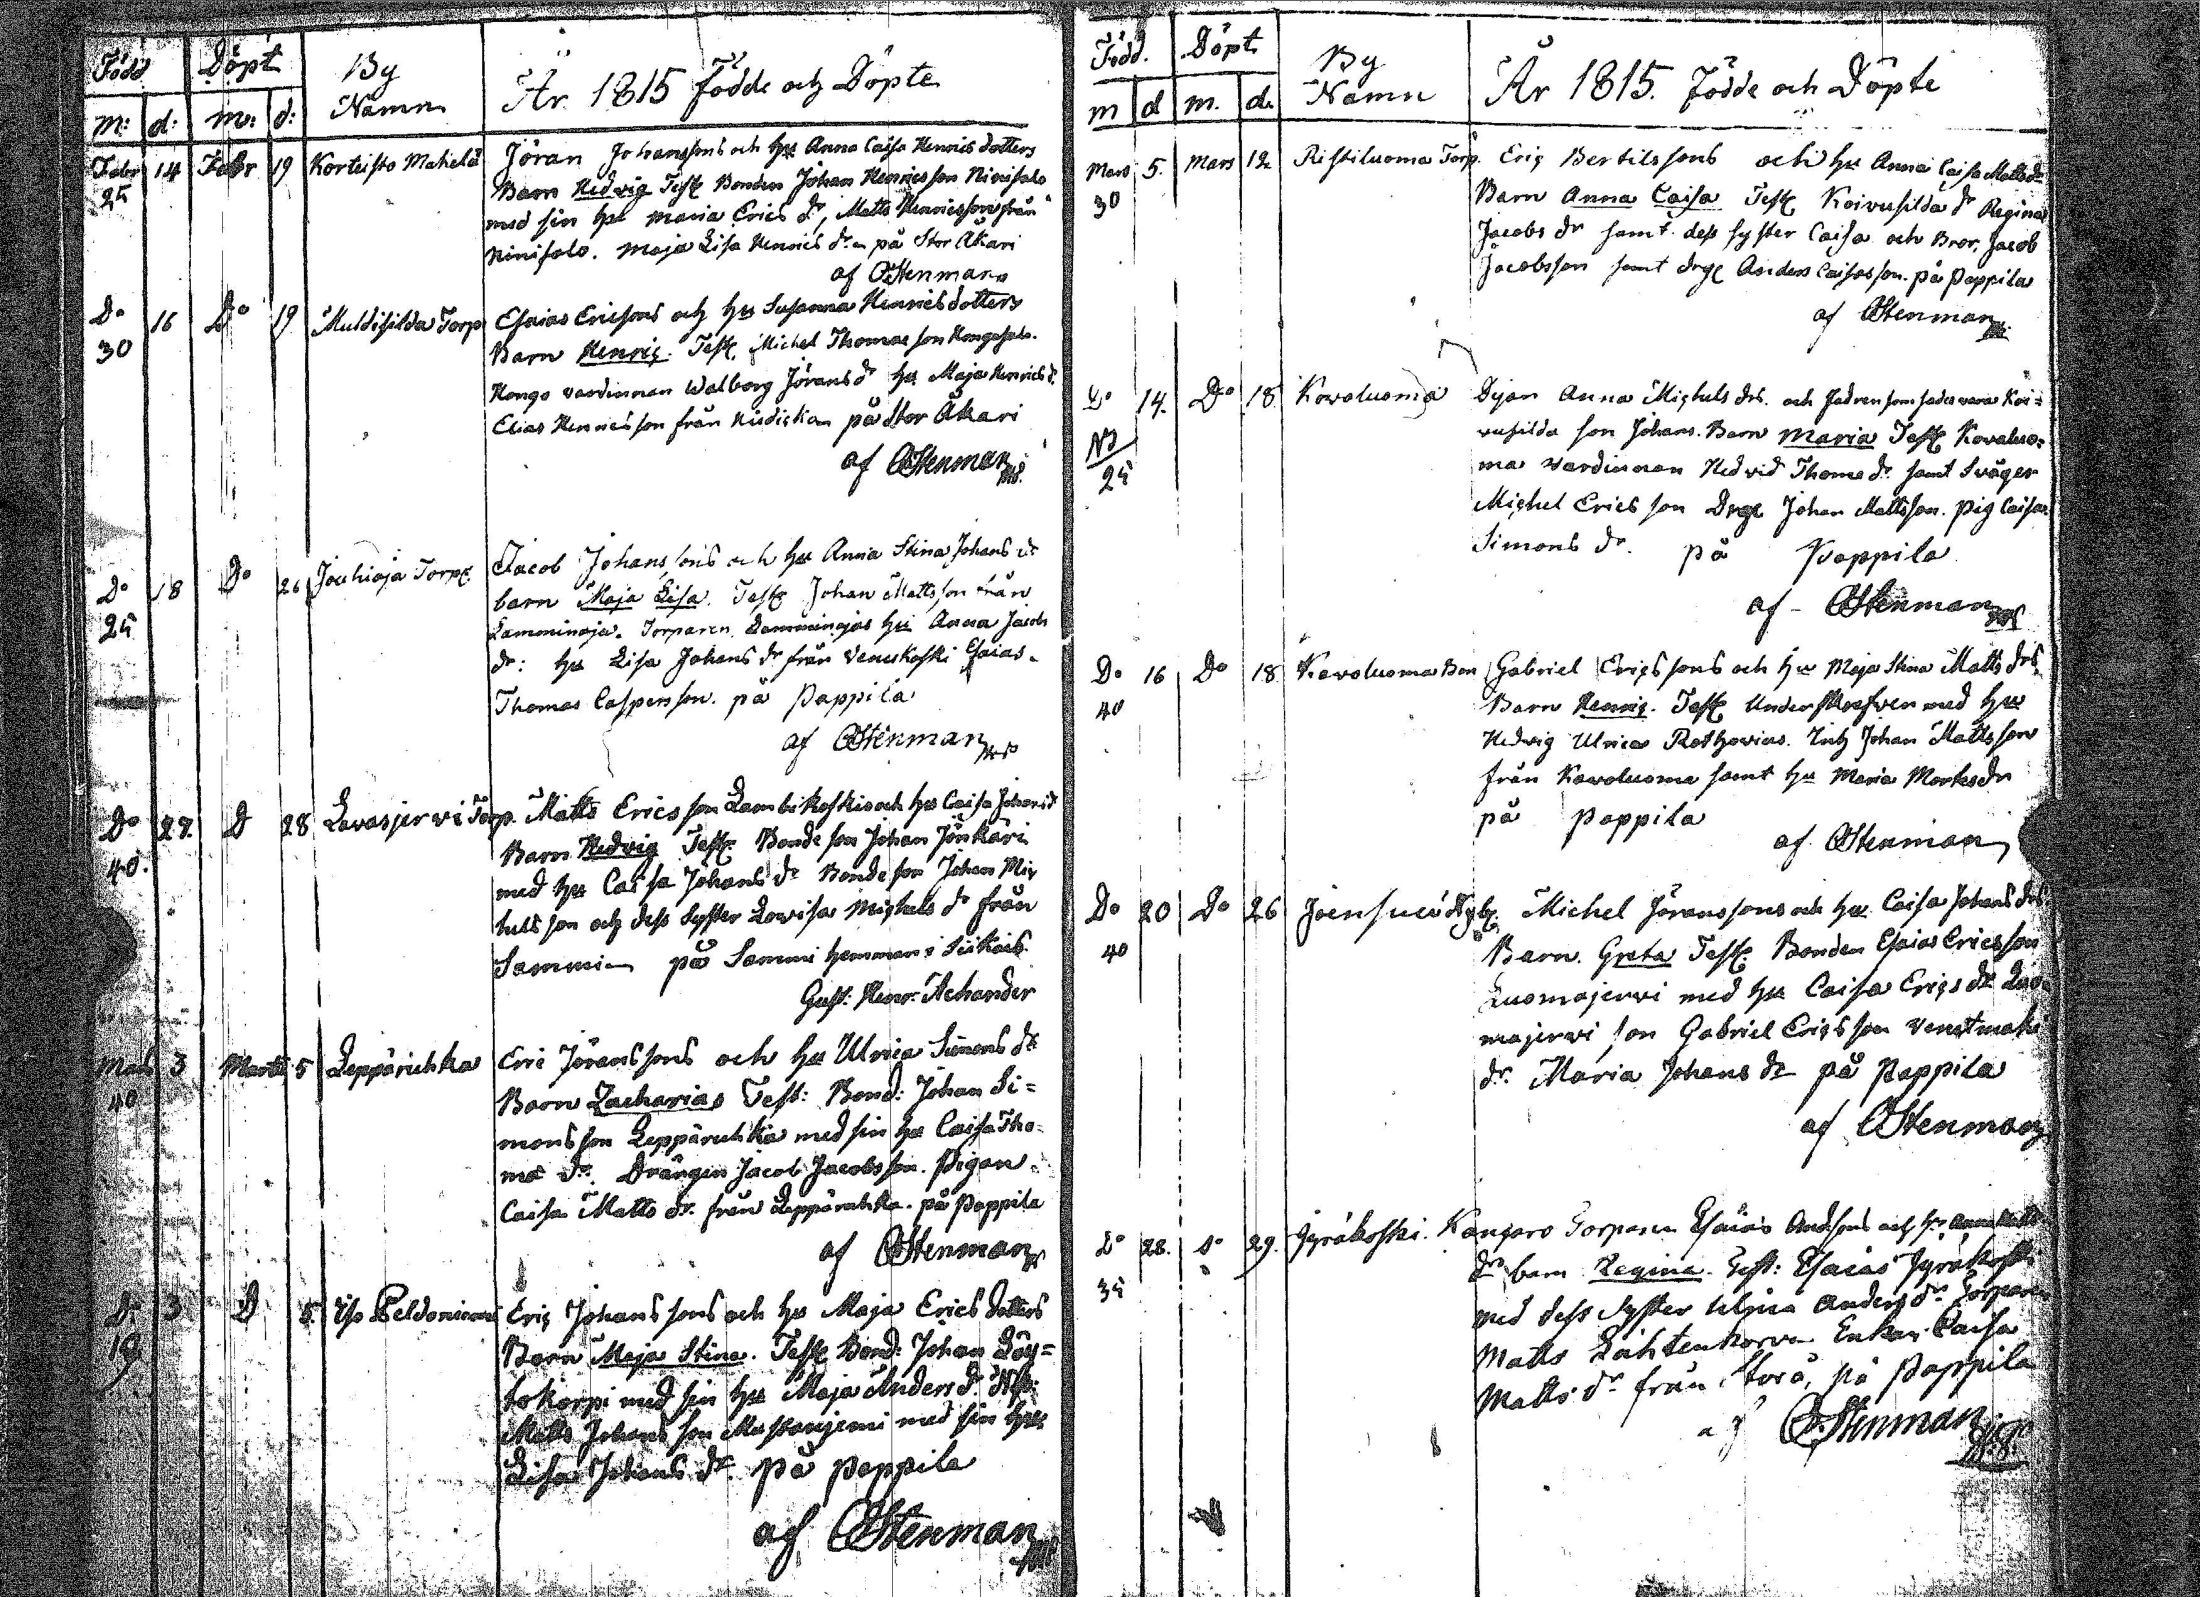 Född Döpt By Namn År 1815 födde och Döpte
m: d: m: d:
Febr 14 Febr 19 Korteisto Mahelä Jöran Johanssons och hu Anna Caisa Henrics dotters
25 Barn Hedwig Test Bonden Johan Henricsson Ninisalo
med sin hu Maria Erics dr, Matts Henricsson från
Ninisalo. Maja Lisa Henrics dr på Stor Äkäri
af CStenman
Do 16 Do 19 Multisilda Torp Esaias Ericsons och hu Susanna Henricsdotters
30 Barn Henric. Test. Michel Thomae son Kongo
Kongo värdinnan Walborg Jörans dr hu Maja Henrics d.
Elias Henricsson från på Stor Äkäri
af CStenman
Do 18 Do 26 Jouhioja Torp. Jacob Johanssons och hu Anna Stina Johans dr
25 barn Maja Lisa. Test Johan Mattsson från
Lamminoja. Torparen Lamminojas hu Anna Jacobs
dr: hu Lisa Johans dr från Veneskoski Esaias
Thomas Caspersson. på Pappila
af CStenman
Do 27. D 28 Lavasjerwi Torp. Matts Ericsson Lambikoski och hu Caisa Johans d
40. Barn Hedwig Test. Bondeson Johan Jönkäri
med hu Caisa Johans dr Bondeson Johan Mic
helsson och dess Syster Lowisa Michels dr från
Sammi på Sammi hemman i Siikais
Gust: Henr: Achander
Mars 3 Martii 5 Leppäruhka Eric Jöranssons och hu Ulrica Simons dr
40 Barn Zacharias Test: Bond: Johan Si=
monsson Leppäruhka med sin hu Caisa Tho=
mæ dr. Drängen Jacob Jacobsson. Pigan
Caisa Matts dr. från Leppäruhka. på Pappila
af CStenman
Do 3 D 5. Iso Peldoniemi Eric Johanssons och hu Maja Erics dotters
19 Barn Maja Stina. Test Bond: Johan Löy=
tokorpi med sin hu Maja Anders dr
Matts Johansson Mustanjemi med sin hu
Lisa Johans dr. på Pappila
af CStenman
Född. Döpt By Namn År 1815. födde och Döpte
m d m. d.
Mars 5. Mars 12 Ristiluoma Torp. Eric Bertilssons och hu Anna Caisa Matts dr
30 Barn Anna Caisa Test Koivusilda dr Regina
Jacobs dr samt dess syster Caisa och Bror Jacob
Jacobsson samt drge Anders Caisasson. på Pappila
af CStenman
Do 14. Do 18 Kowaluoma Pijan Anna Michels drs. och fadren som sades wara Koi=
NB wusilda son Johans. Barn Maria Test Kowaluo=
25 ma värdinnan Hedvid Thomæ dr samt Svåger
Michel Ericsson Drge Johan Mattsson. pig Caisa
Simons dr. på Pappila
af CStenman
Do 16 Do 18 Kowoluoma Bon Gabriel Ericssons och hu Maja Stina Matts drs
40 Barn Henric. Test Underskrefven med hu
Hedvig Ulrica Rothovius. Johan Mattsson
från Kowoluoma samt hu Maria Markus dr
på Pappila
af CStenman
Do 20 Do 26 Joensuu Michel Jöranssons och hu Caisa Johans drs
40 Barn. Greta Test. Bonden Esaias Ericsson
Luomajerwi med hu Caisa Erics dr Luo=
majerwi son Gabriel Ericsson
dr. Maria Johans dr på Pappila
af CStenman
Do 28. Do 29. Jyräkoski. Kangaro Torparen Esaias Andsons och hu Anna Matts
35 dr barn Regina. Test: Esaias Jyräkoski
med dess Syster Ulrica Anders dr Torparen
Matts Lähtenkorva Enkan Caisa
Matts dr från Storå, på Pappila
af CStenman